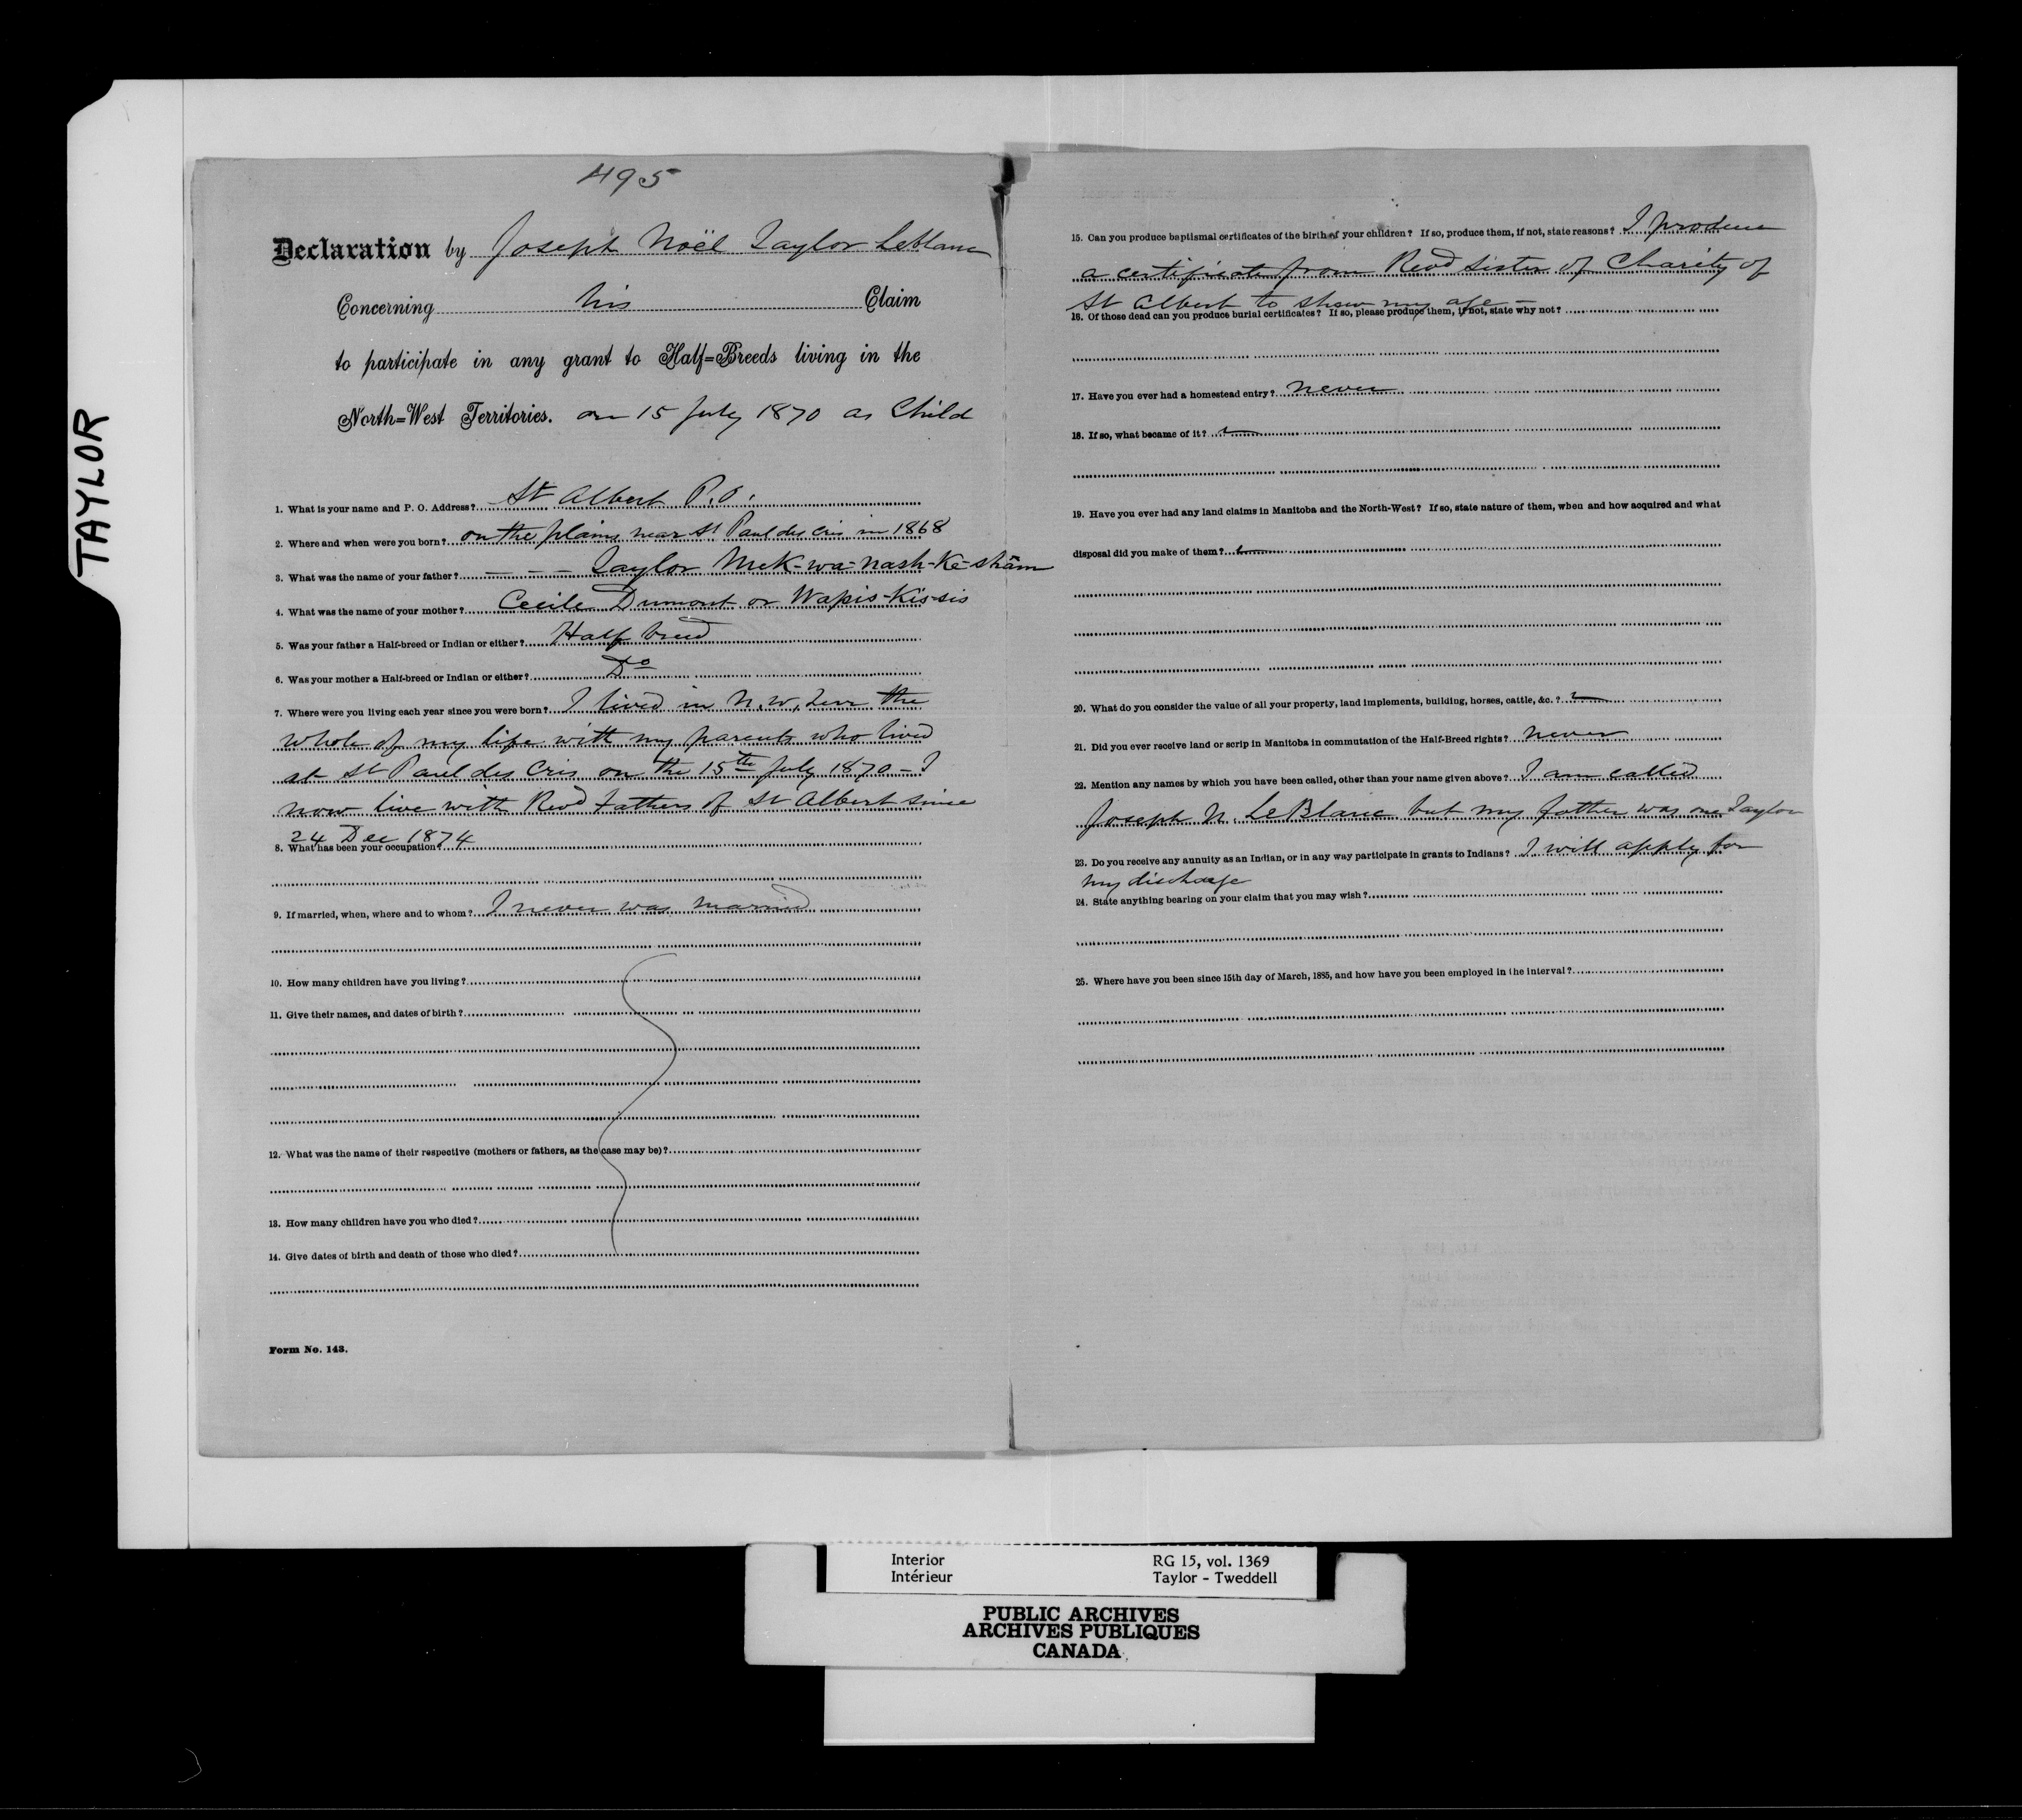 TAYLOR
495
Declaration by Joseph Noël Taylor LeBlanc
Concerning his Claim
to participate in any grant to Half=Breeds living in the
North=West Territories. on 15 July 1870 as Child
1. What is your name and P. O. Address? St Albert P.O.
2. Where and when were you born? on the plains near St Paul des Cris in 1868
3. What was the name of your father? – – – Taylor Mek-wa-nash-Ke-sham
4. What was the name of your mother? Cecile Dumont or Wapis-Kis-sis
5. Was your father a Half-breed or Indian or either? Half breed
6. Was your mother a Half-breed or Indian or either? Do
7. Where were you living each year since you were born? I lived in N.W. Terr the
whole of my life with my parents who lived
at St Paul des Cris on the 15th July 1870 – I
now live with Revd Fathers of St Albert since
24 Dec 1874
8. What has been your occupation?
9. If married, when, where and to whom? I never was married
10. How many children have you living?
11. Give their names, and dates of birth?
12. What was the name of their respective (mothers or fathers, as the case may be)?
13. How many children have you who died?
14. Give dates of birth and death of those who died?
Form No. 143.
15. Can you produce baptismal certificates of the birth of your children? If so, produce them, if not, state reasons? I produce
a certificate from Revd Sister of Charity of
St Albert to show my age –
16. Of those dead can you produce burial certificates? If so, please produce them, if not, state why not?
17. Have you ever had a homestead entry? never
18. If so, what became of it?
19. Have you ever had any land claims in Manitoba and the North-West? If so, state nature of them, when and how acquired and what
disposal did you make of them?
20. What do you consider the value of all your property, land implements, building, horses, cattle, &c.?
21. Did you ever receive land or scrip in Manitoba in commutation of the Half-Breed rights? never
22. Mention any names by which you have been called, other than your name given above? I am called
Joseph N. LeBlanc but my father was one Taylor
23. Do you receive any annuity as an Indian, or in any way participate in grants to Indians? I will apply for
my discharge
24. State anything bearing on your claim that you may wish?
25. Where have you been since 15th day of March, 1885, and how have you been employed in the interval?
Interior RG 15, vol. 1369
Intérieur Taylor - Tweddell
PUBLIC ARCHIVES
ARCHIVES PUBLIQUES
CANADA